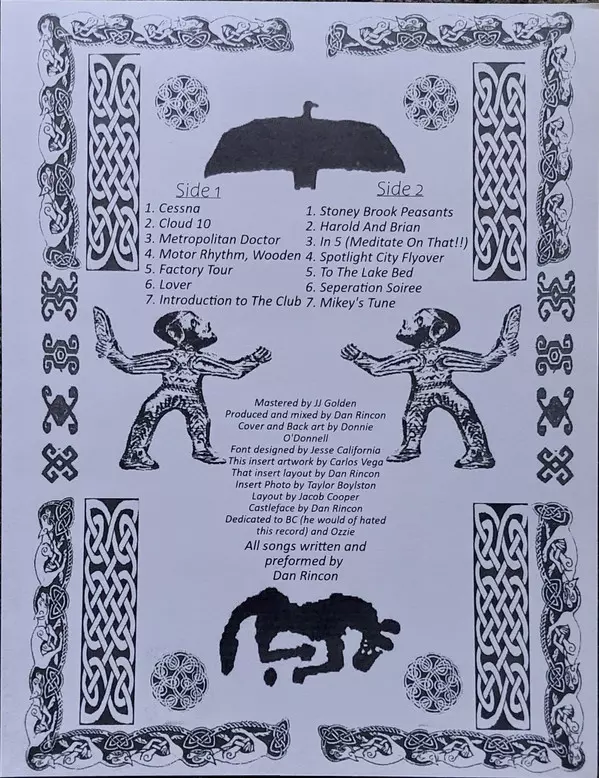 Side 1
1. Cessna
2. Cloud 10
3. Metropolitan Doctor
4. Motor Rhythm, Wooden
5. Factory Tour
6. Lover
7. Introduction to The Club
Side 2
1. Stoney Brook Peasants
2. Harold And Brian
3. In 5 (Meditate On That!!)
4. Spotlight City Flyover
5. To The Lake Bed
6. Seperation Soiree
7. Mikey's Tune
Mastered by JJ Golden
Produced and mixed by Dan Rincon
Cover and Back art by Donnie
O'Donnell
Font designed by Jesse California
This insert artwork by Carlos Vega
That insert layout by Dan Rincon
Insert Photo by Taylor Boylston
Layout by Jacob Cooper
Castleface by Dan Rincon
Dedicated to BC (he would of hated
this record) and Ozzie
All songs written and
preformed by
Dan Rincon